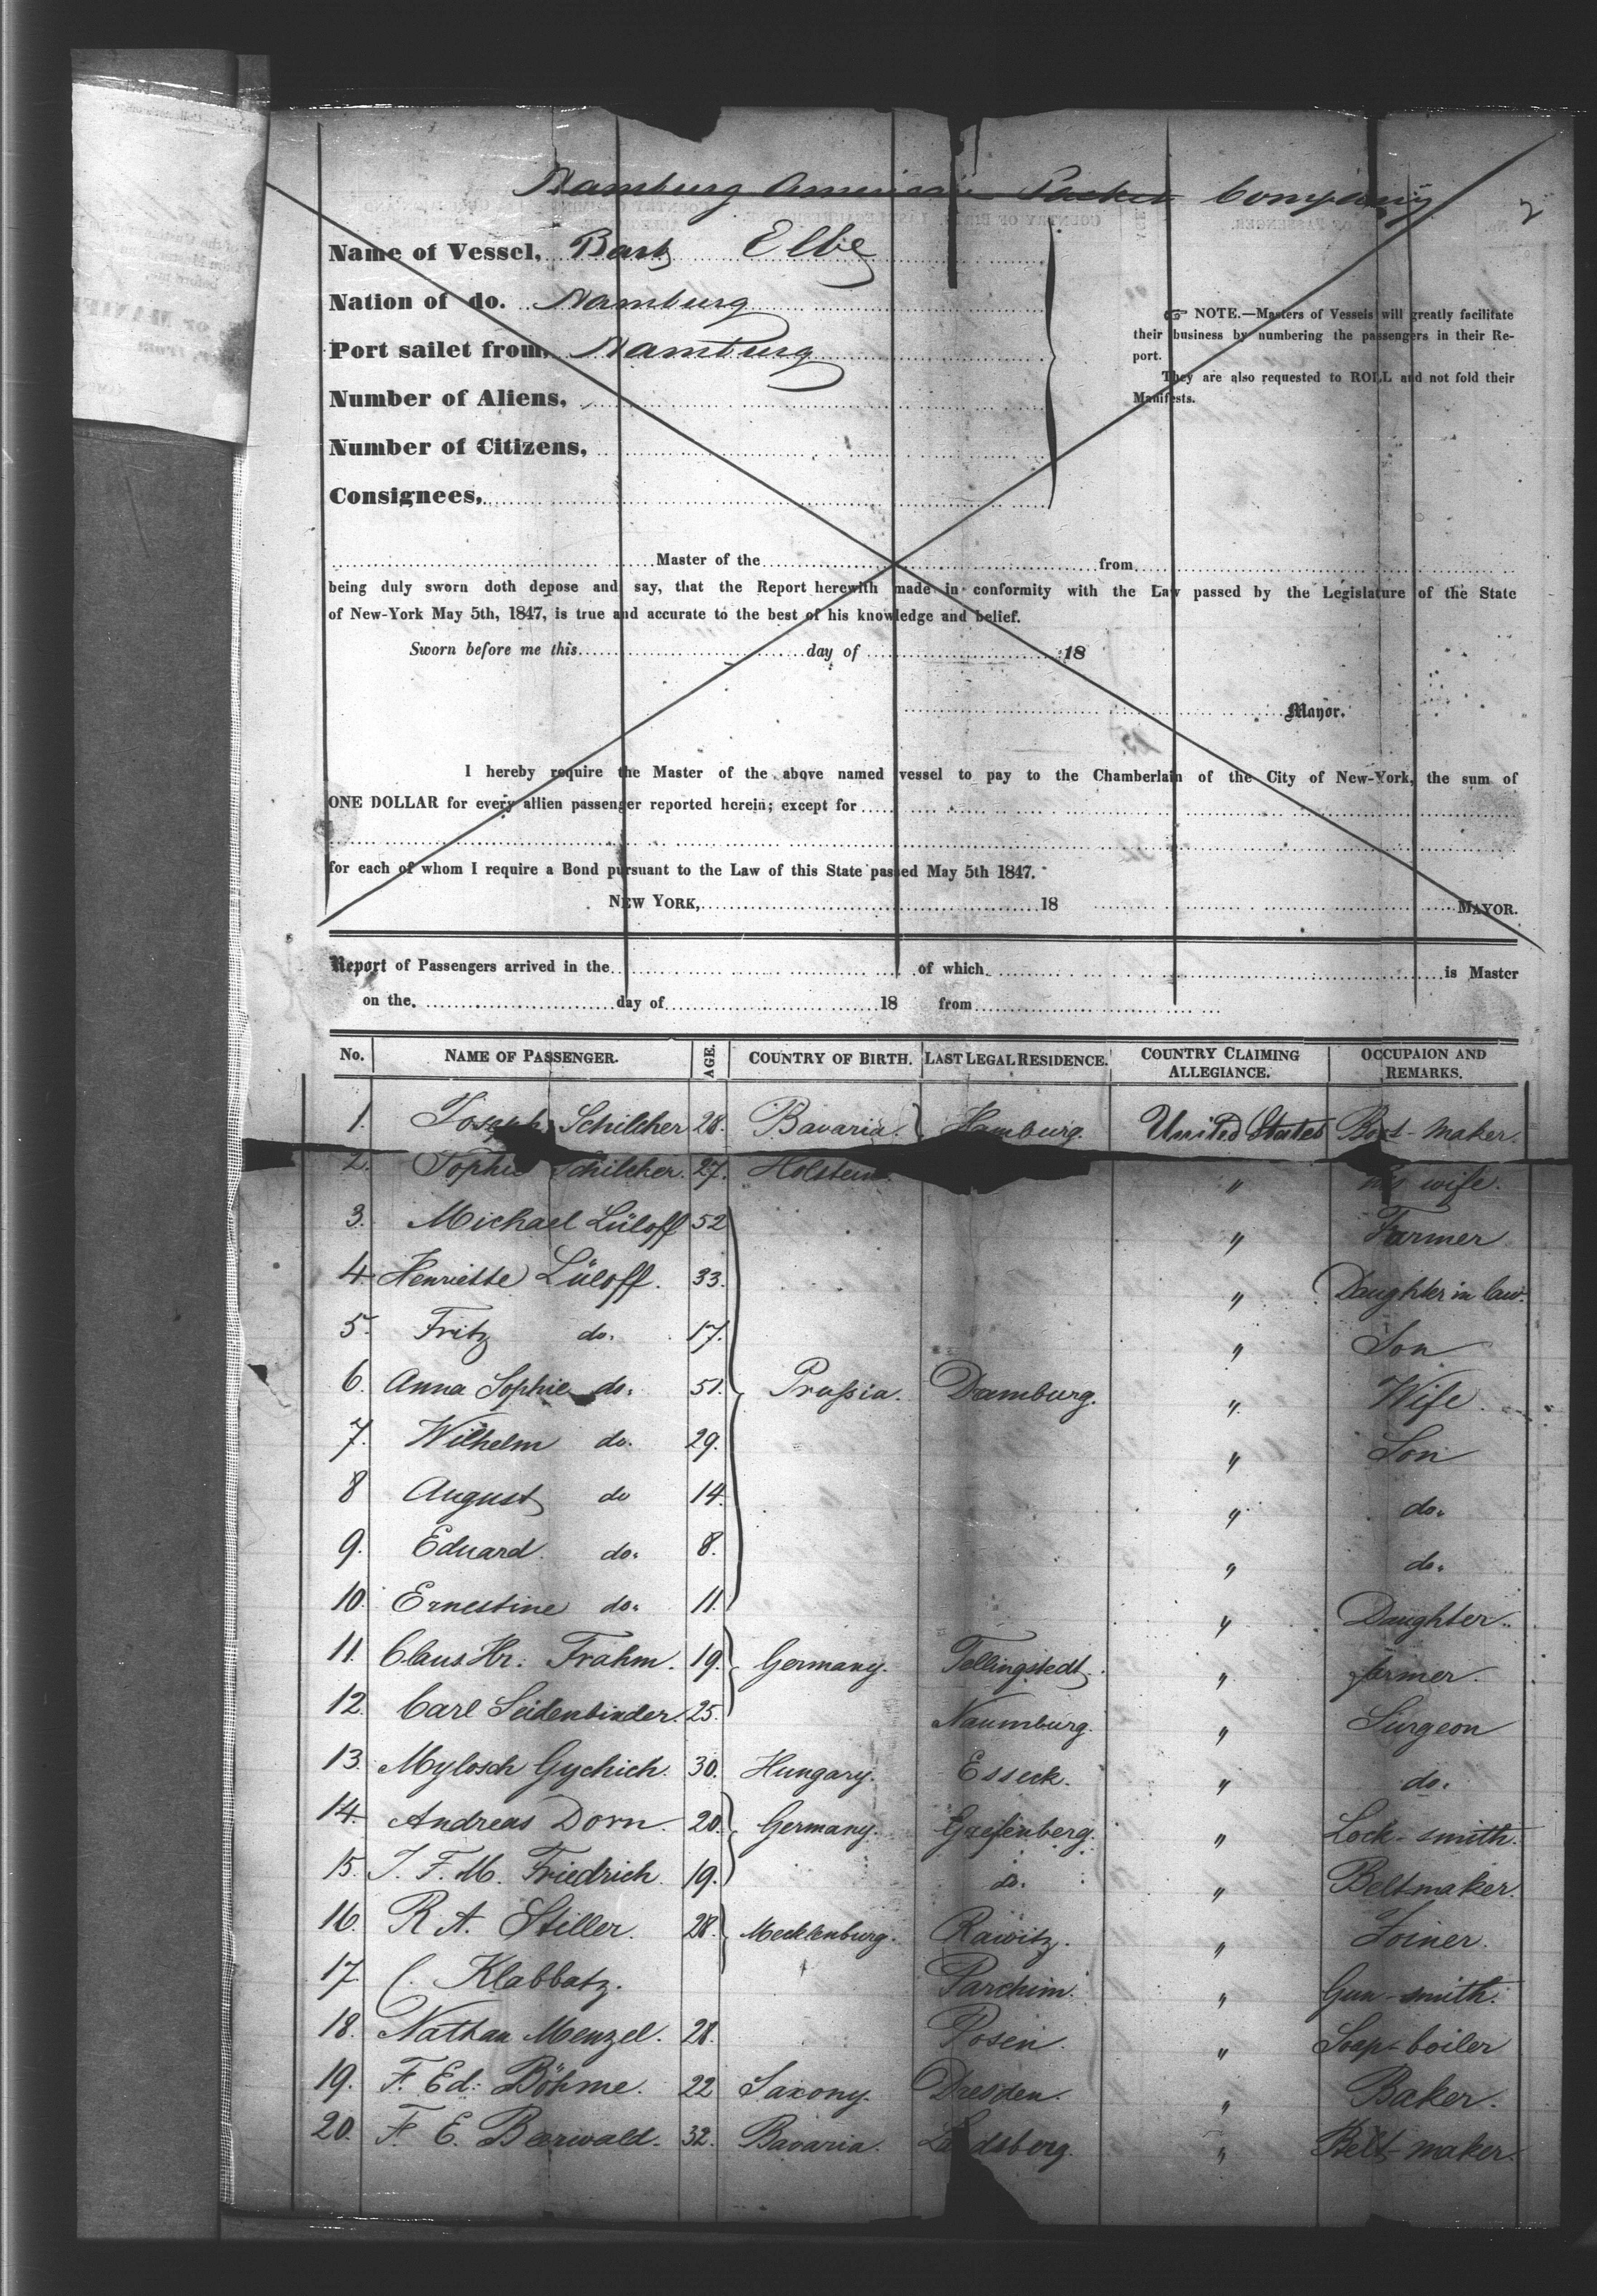 Hamburg American Packet Company
2
Name of Vessel, Bark Elbe
Nation of do. Hamburg
Port sailet from, Hamburg
Number of Aliens,
Number of Citizens,
Consignees,
☞ NOTE.—Masters of Vessels will greatly facilitate
their business by numbering the passengers in their Re-
port.
They are also requested to ROLL and not fold their
Manifests.
Master of the from
being duly sworn doth depose and say, that the Report herewith made in conformity with the Law passed by the Legislature of the State
of New-York May 5th, 1847, is true and accurate to the best of his knowledge and belief.
Sworn before me this day of 18
Mayor.
I hereby require the Master of the above named vessel to pay to the Chamberlain of the City of New-York, the sum of
ONE DOLLAR for every allien passenger reported herein; except for
for each of whom I require a Bond pursuant to the Law of this State passed May 5th 1847.
NEW YORK, 18 MAYOR.
Report of Passengers arrived in the of which is Master
on the. day of 18 from
No. NAME OF PASSENGER. AGE. COUNTRY OF BIRTH. LAST LEGAL RESIDENCE. COUNTRY CLAIMING ALLEGIANCE. OCCUPAION AND REMARKS.
1. Joseph Schilcher 28. Bavaria. Hamburg. United States Boot-maker.
2. Sophie Schilcher. 27. Holstein " his wife.
3. Michael Lüloff 52 " Farmer
4. Henriette Lüloff. 33. " Daughter in law.
5. Fritz do. 17. " Son
6. Anna Sophie do. 51. Prußia. Damburg. " Wife.
7. Wilhelm do. 29. " Son
8 August do 14. " do.
9. Eduard. do. 8. " do.
10. Ernestine do. 11. " Daughter.
11. Claus Hr. Frahm. 19. Germany. Tellingstedt. " farmer.
12. Carl Seidenbinder. 25. Naumburg. " Surgeon
13. Mylosch Gychich. 30. Hungary. Esseck. " do.
14. Andreas Dorn. 20. Germany. Grefenberg. " Lock-smith.
15. J. F. M. Friedrich. 19. do. " Beltmaker.
16. R. A. Stiller. 28. Mecklenburg. Rawitz. " Joiner.
17. C. Klabbatz. Parchim. " Gun-smith.
18. Nathan Menzel. 28. Posen. " Soap-boiler
19. F. Ed. Böhme. 22 Saxony. Dresden. " Baker.
20. F. E. Beerwald. 32. Bavaria. Landsberg. " Belt-maker.